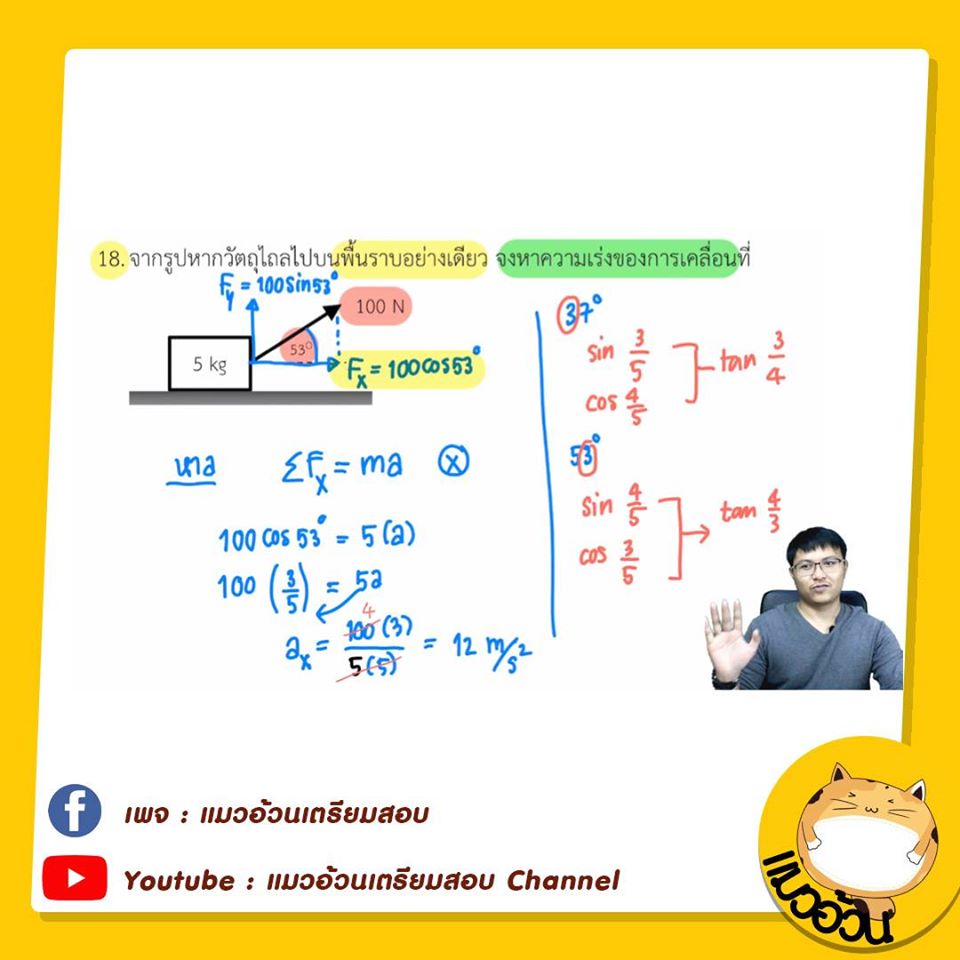 18. จากรูปหากวัตถุไถลไปบนพื้นราบอย่างเดียว จงหาความเร่งของการเคลื่อนที่
Fy = 100sin53°
100 N
53°
5 kg
Fx = 100cos53°
หาa ΣFx = ma (x)
100 cos 53° = 5 (a)
100 (3/5) = 5a
4
ax = 100 (3) / 5 (5) = 12 m/s²
37°
sin 3/5
cos 4/5
tan 3/4
53°
sin 4/5
cos 3/5
tan 4/3
f เพจ : แมวอ้วนเตรียมสอบ
Youtube : แมวอ้วนเตรียมสอบ Channel
แมวอ้วน